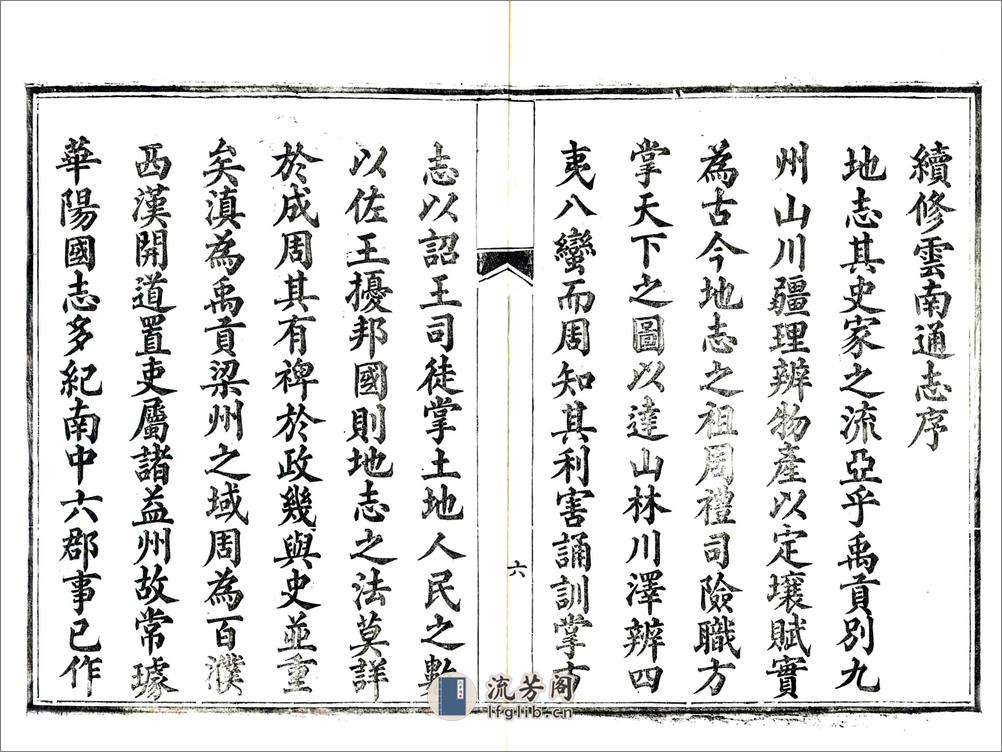 續修雲南通志序
地志其史家之流亞乎禹貢別九
州山川疆理辨物產以定壤賦實
為古今地志之祖周禮司險職方
掌天下之圖以達山林川澤辨四
夷八蠻而周知其利害誦訓掌方
六
志以詔王司徒掌土地人民之數
以佐王擾邦國則地志之法莫詳
於成周其有裨於政幾與史並重
矣滇為禹貢梁州之域周為百濮
西漢開道置吏屬諸益州故常璩
華陽國志多紀南中六郡事已作
流芳阁
lfglib.cn